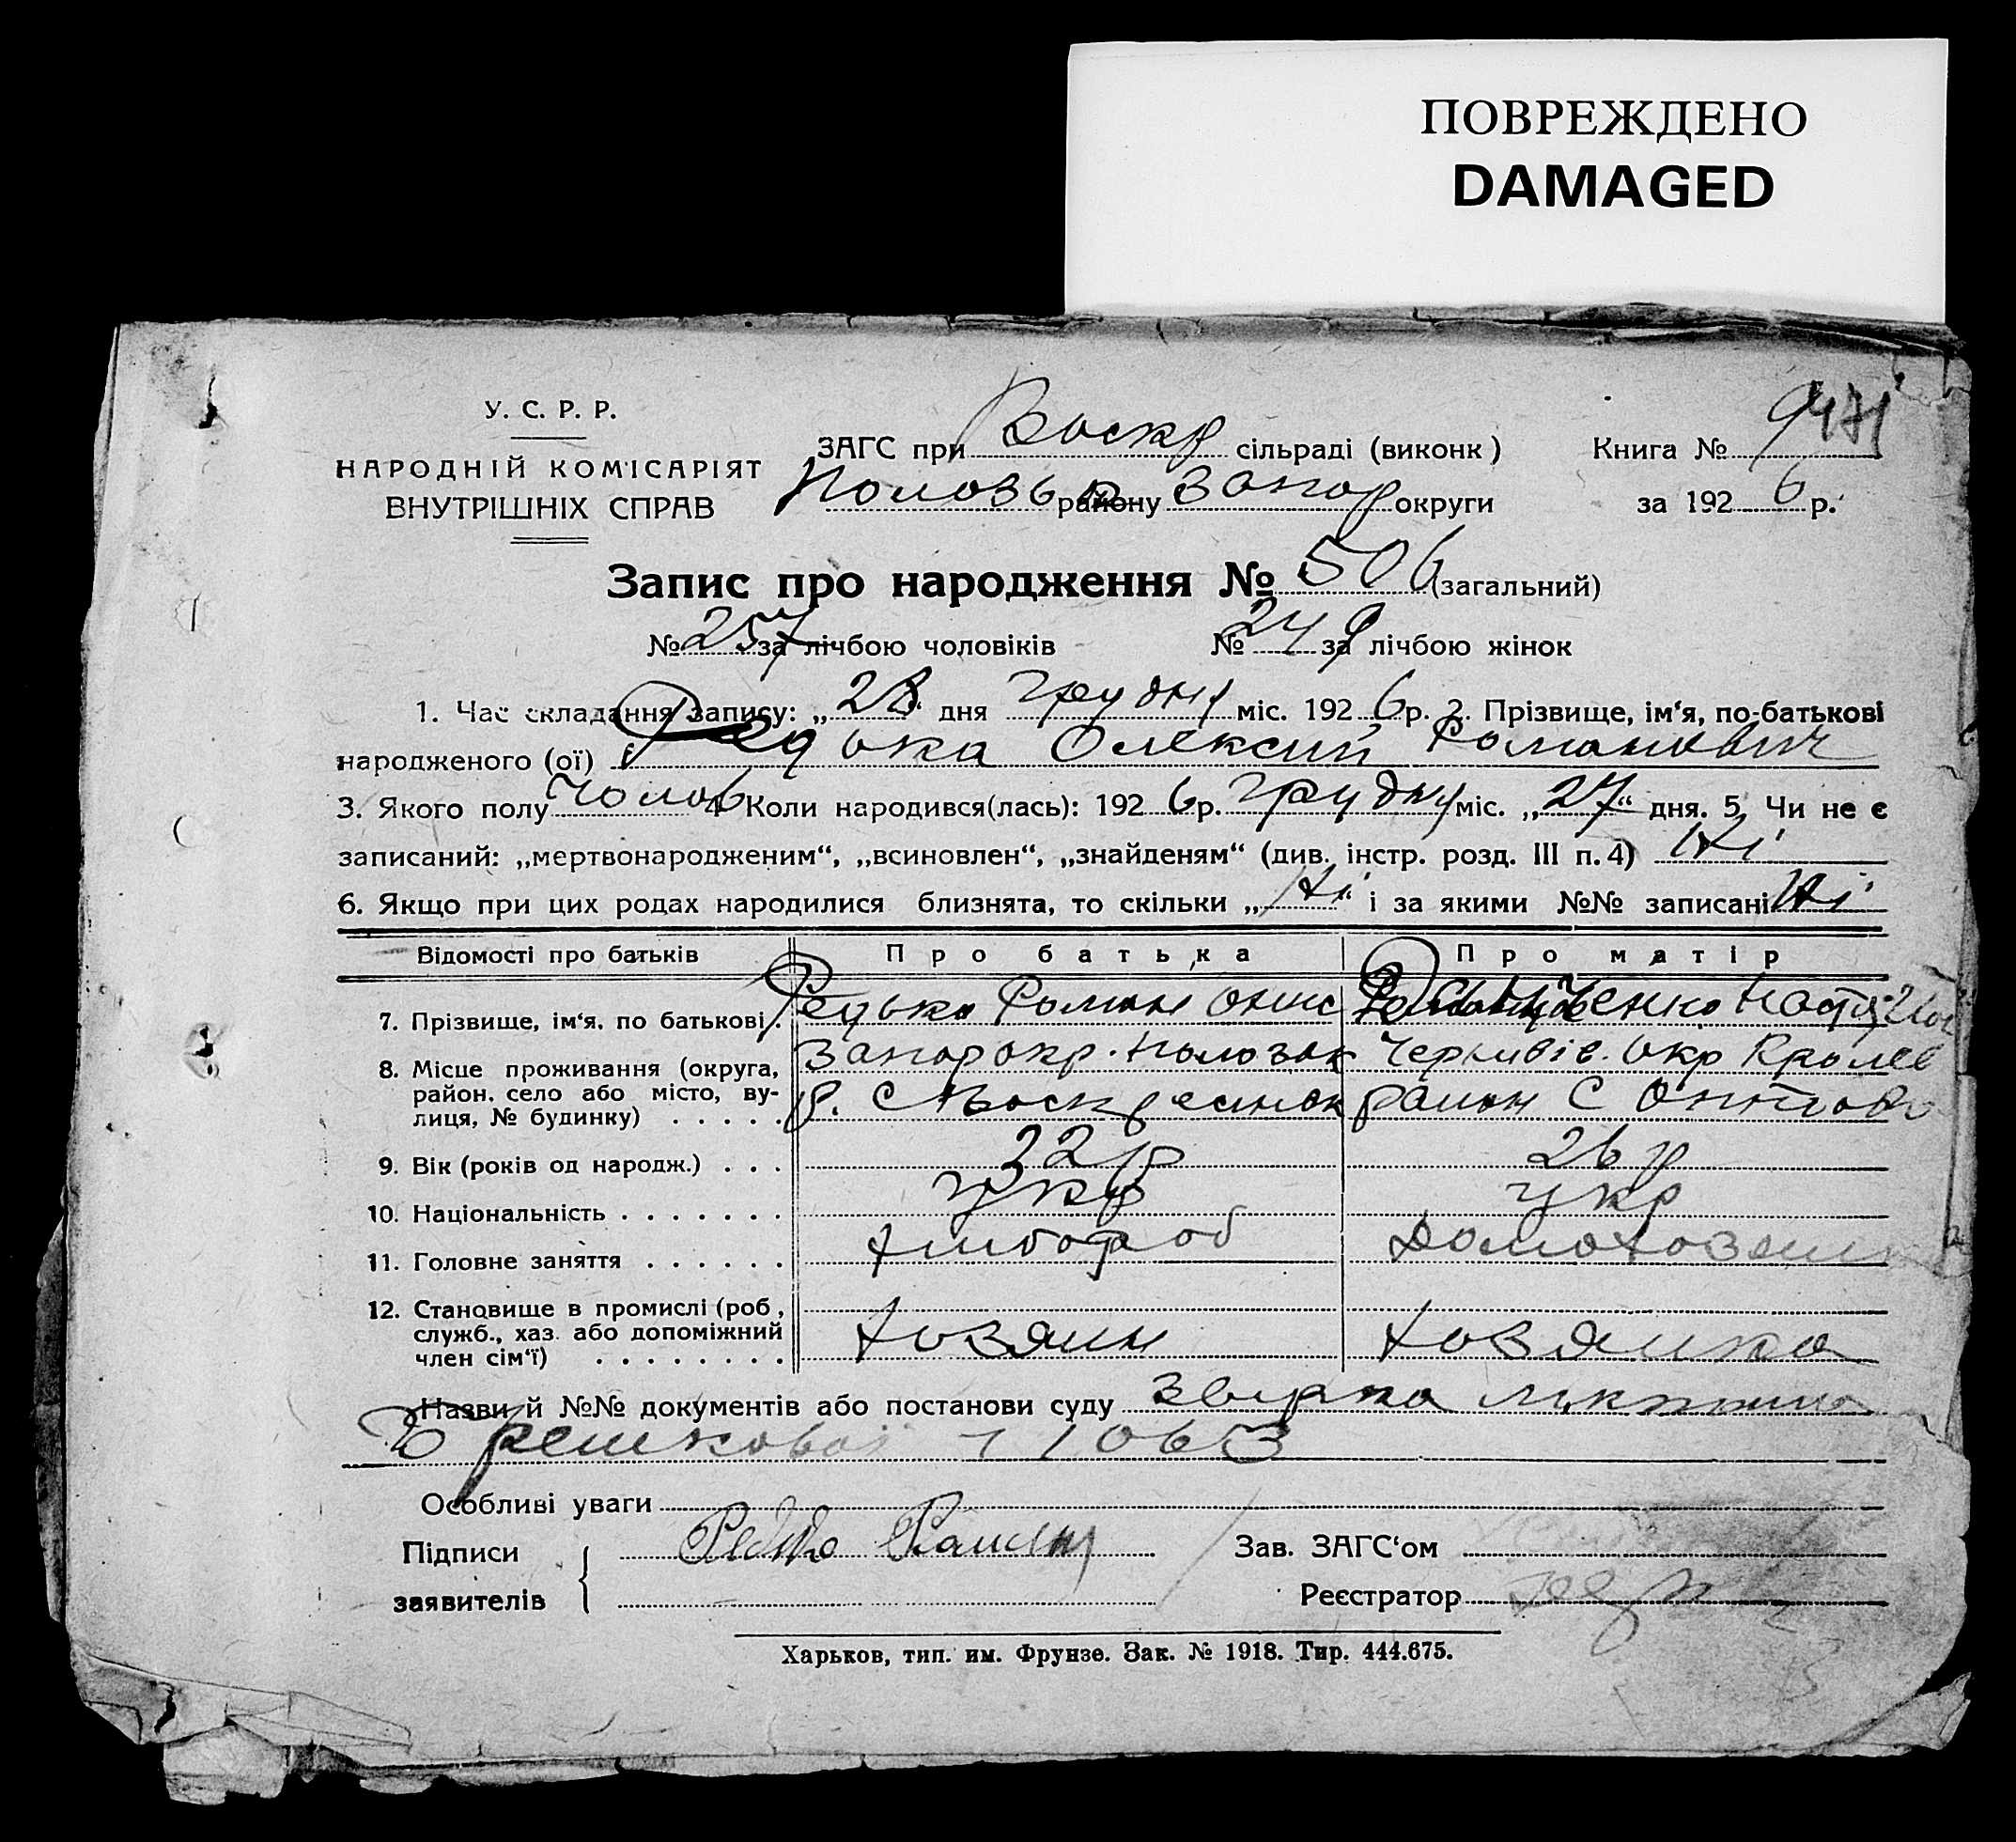 ПОВРЕЖДЕНО
DAMAGED
У. С. Р. Р.
НАРОДНІЙ КОМІСАРІЯТ
ВНУТРІШНІХ СПРАВ
ЗАГС при Воскр сільраді (виконк)
району Запор округи
Книга №
за 192 6 р.
Запис про народження № 506 (загальний)
№ 257 за лічбою чоловіків № 249 за лічбою жінок
1. Час складання запису: „28“ дня грудня міс. 192 6 р. 2. Прізвище, ім‘я, по-батькові
народженого (ої) Редька Олексий Романович
3. Якого полу чолов 4 Коли народився(лась): 192 6 р. грудня міс. „27“ дня. 5. Чи не є
записаний: „мертвонародженим“, „всиновлен“, „знайденям“ (див. інстр. розд. III п. 4) Ні
6. Якщо при цих родах народилися близнята, то скільки „Ні“ і за якими №№ записані Ні
Відомості про батьків Про батька Про матір
7. Прізвище, ім‘я, по батькові. Редько Роман Онис
8. Місце проживання (округа, Запор окр. Чернигів. окр Кролев
район, село або місто, ву- р. С Воскресенок район С
лиця, № будинку) . . . . .
9. Вік (років од народж.) . . . 32 р 26 р
10. Національність . . . . . . . укр укр
11. Головне заняття . . . . . . хлібороб домохозяйк
12. Становище в промислі (роб,
служб., хаз. або допоміжний хозяин хозяйка
член сім‘ї) . . . . . . . .
Назви й №№ документів або постанови суду
1063
Особливі уваги
Підписи Редко Роман Зав. ЗАГС‘ом
заявителів Реєстратор
Харьков, тип. им. Фрунзе. Зак. № 1918. Тир. 444.675.